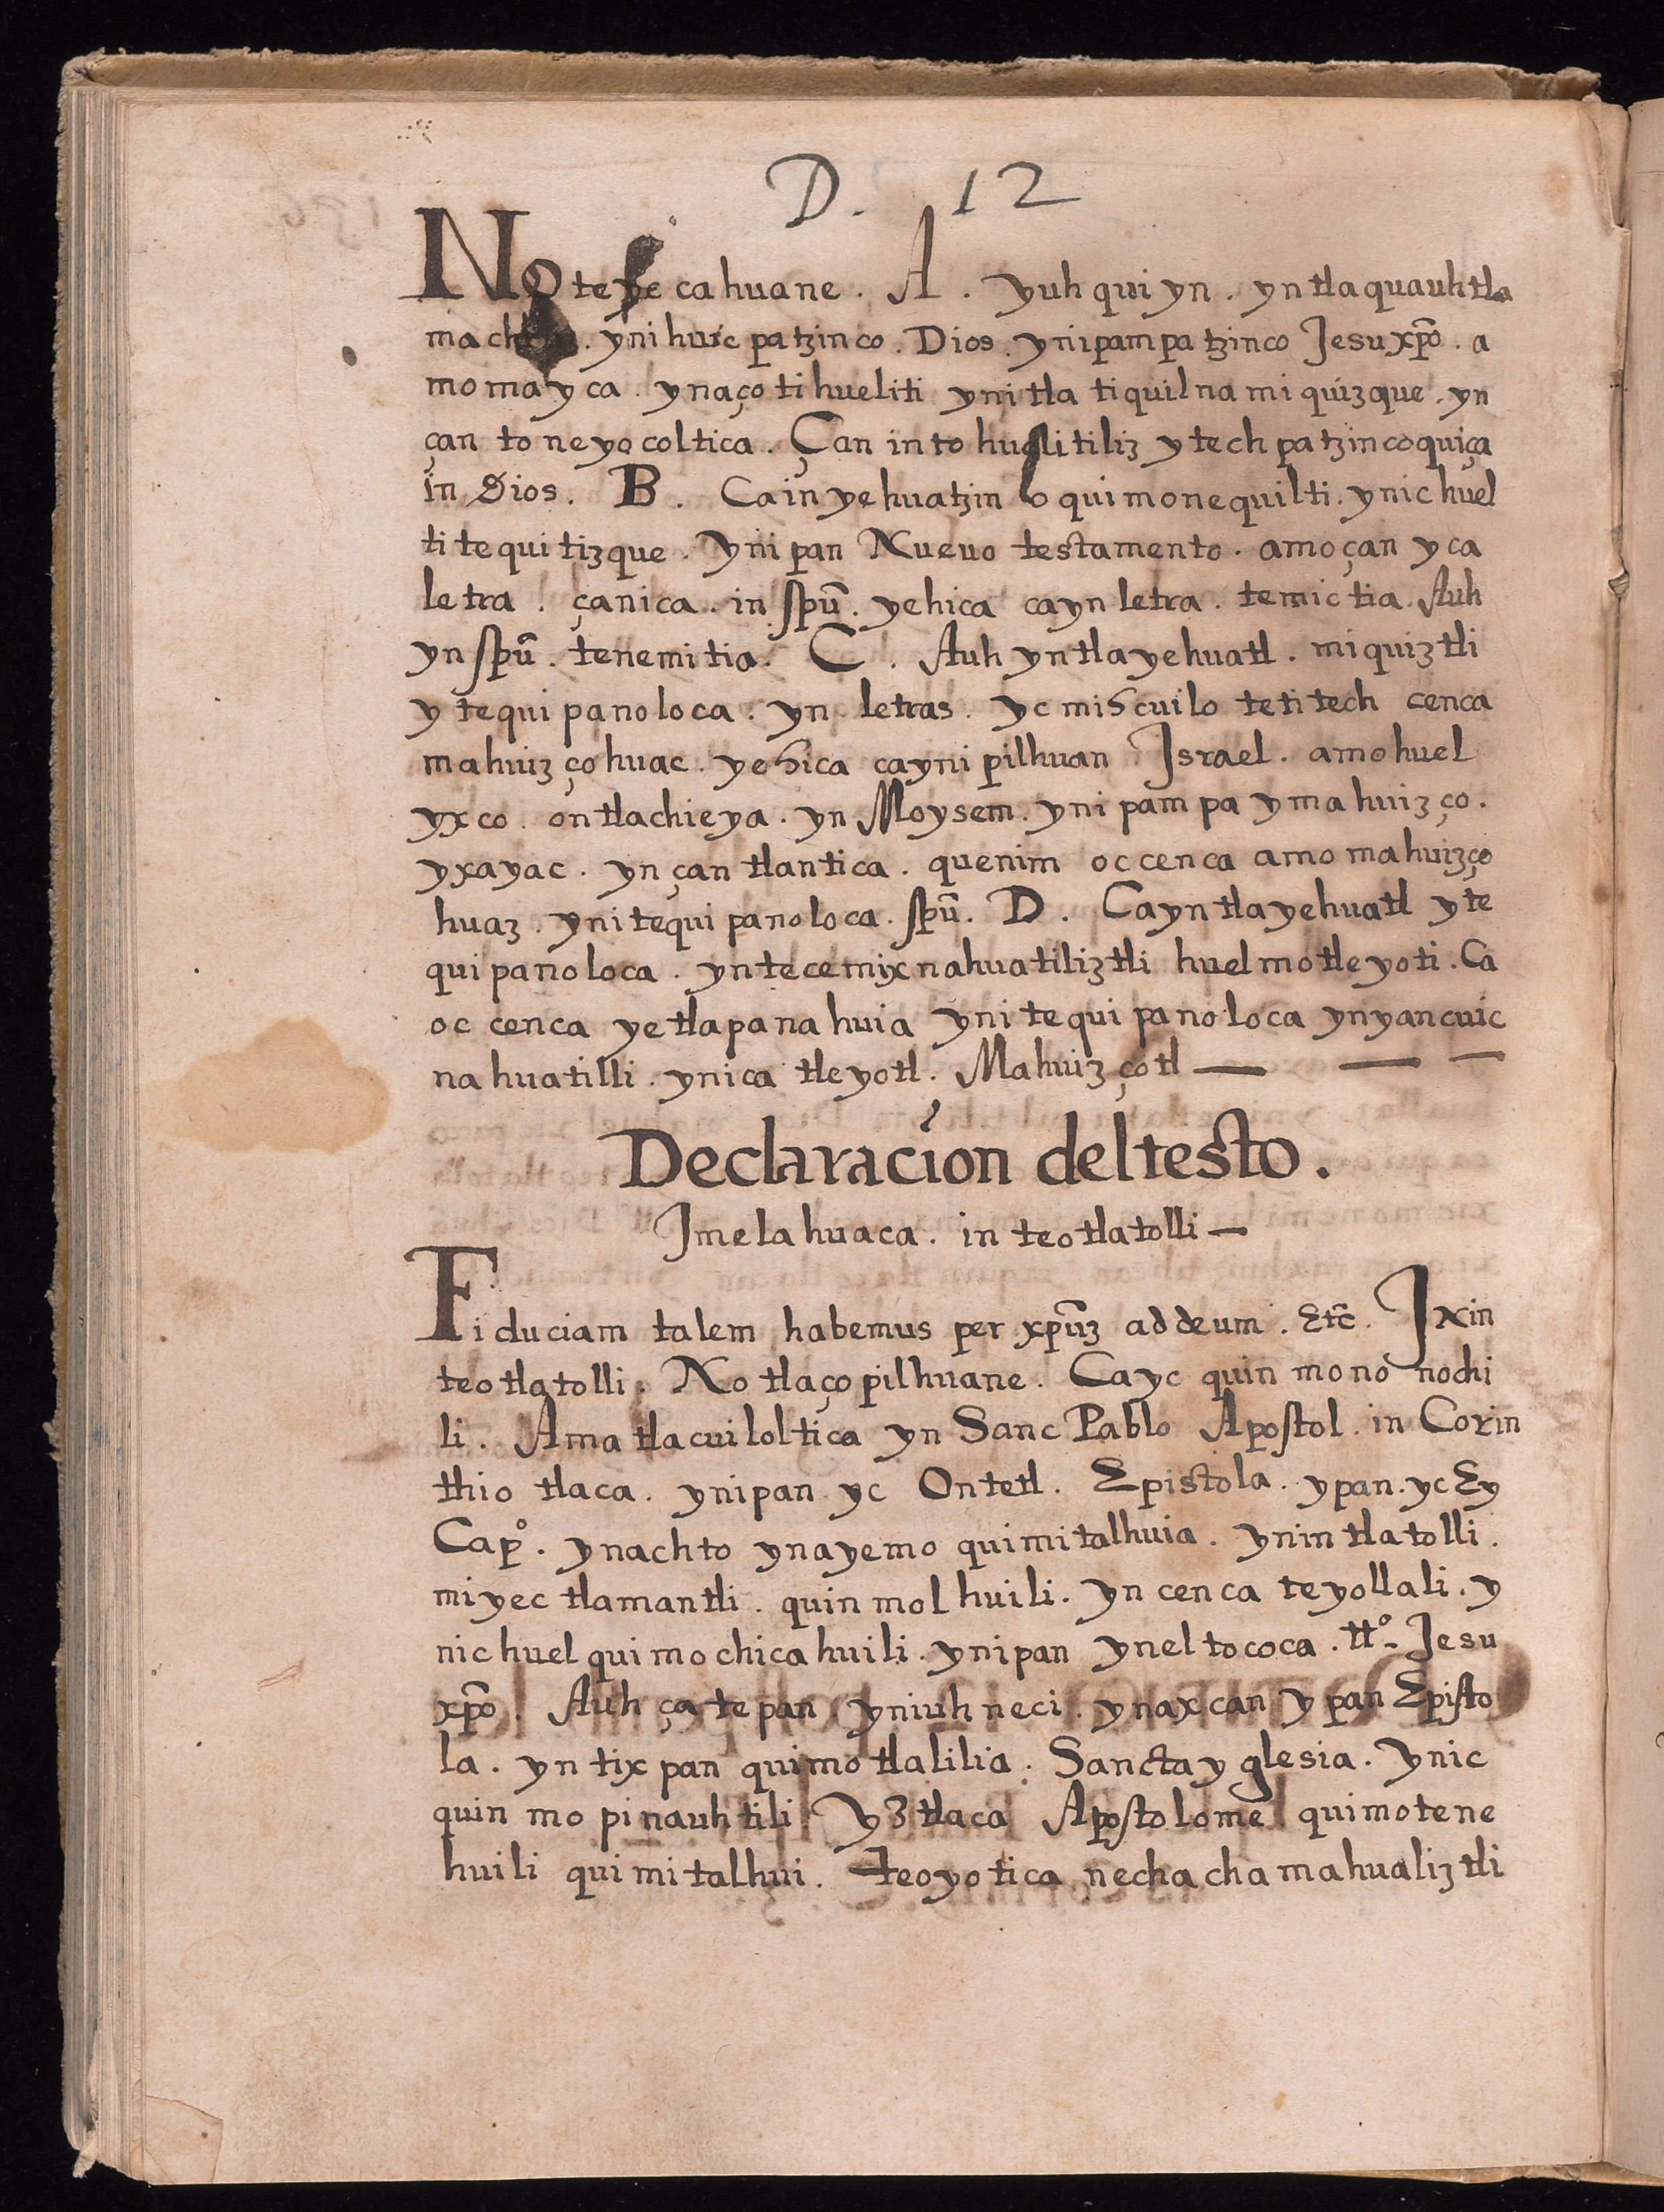 D. 12
Noteyecahuane. A. yuh qui yn. yn tlaquauhtla
mach. yni huic patzinco. Dios. ynipampatzinco Jesu xp̄o. a
mo ma yca. ynaço tihueliti ynitla tiquilnamiquizque. yn
çan toneyocoltica. Çan in tohuelitiliz ytechpatzinco quiça
in Dios. B. Ca in yehuatzin oquimonequilti. ynic huel
titequitizque. ynipan Nueuo testamento. amo çan yca
letra. çan ica. in spū. yehica ca yn letra. temictia. Auh
yn spū. tenemitia. C. Auh yntla yehuatl. miquiztli
ytequipanoloca. yn letras. yc mihcuilo tetitech cenca
mahuizçohuac. yehica ca yni pilhuan Israel. amo huel
yxco. ontlachieya. yn Moysem. ynipampa ymahuizço.
yxayac. yn çan tlantica. quenim oc cenca amo mahuizço
huaz. ynitequipanoloca. spū. D. Ca yntla yehuatl yte
quipanoloca. yn tecemixnahuatiliztli huel motleyoti. Ca
oc cenca ye tlapanahuia ynitequipanoloca yn yancuic
nahuatilli. ynica tleyotl. Mahuizçotl — — —
Declaracion del testo.
Jmelahuaca. in teotlatolli —
Fiduciam talem habemus per xp̄uz ad deum. Etc̄. Jxin
teotlatolli. Notlaçopilhuane. Ca yc quinmononochi
li. Amatlacuiloltica yn Sanc Pablo Apostol. in Corin
thio tlaca. ynipan yc Ontetl. Epistola. ypan. yc Ey
Cap̊. ynachto ynayemo quimitalhuia. ynin tlatolli.
miyec tlamantli. quinmolhuili. yn cenca teyollali. y
nic huel quimochicahuili. ynipan yneltococa. tt̊. Jesu
xp̄o. Auh çatepan. yniuh neci. ynaxcan ypan Episto
la. yn tixpan quimotlalilia. Sancta yglesia. ynic
quinmopinauhtili yz tlaca Apostolome quimotene
huili quimitalhui. teoyotica nechachamahualiztli